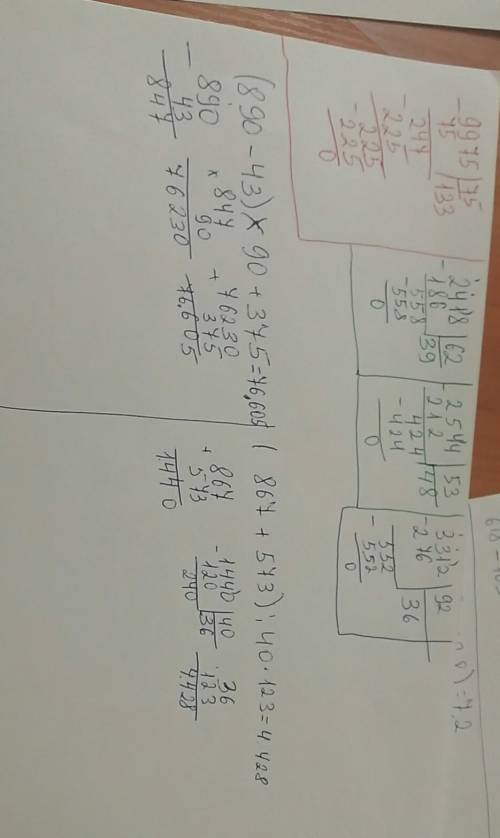 - 9975 | 75
75 | 133
- 247
225
- 225
225
0
- 2418 | 62
186 | 39
- 558
558
0
- 2544 | 53
212 | 48
- 424
424
0
- 3312 | 92
276 | 36
- 552
552
0
) = 7,2
(890 - 43) × 90 + 375 = 76,605
- 890
43
847
× 847
90
76230
+ 76230
375
76605
( 867 + 573) : 40 · 123 = 4 428
+ 867
573
1440
- 1440 | 40
120 | 36
240
36
123
4.428